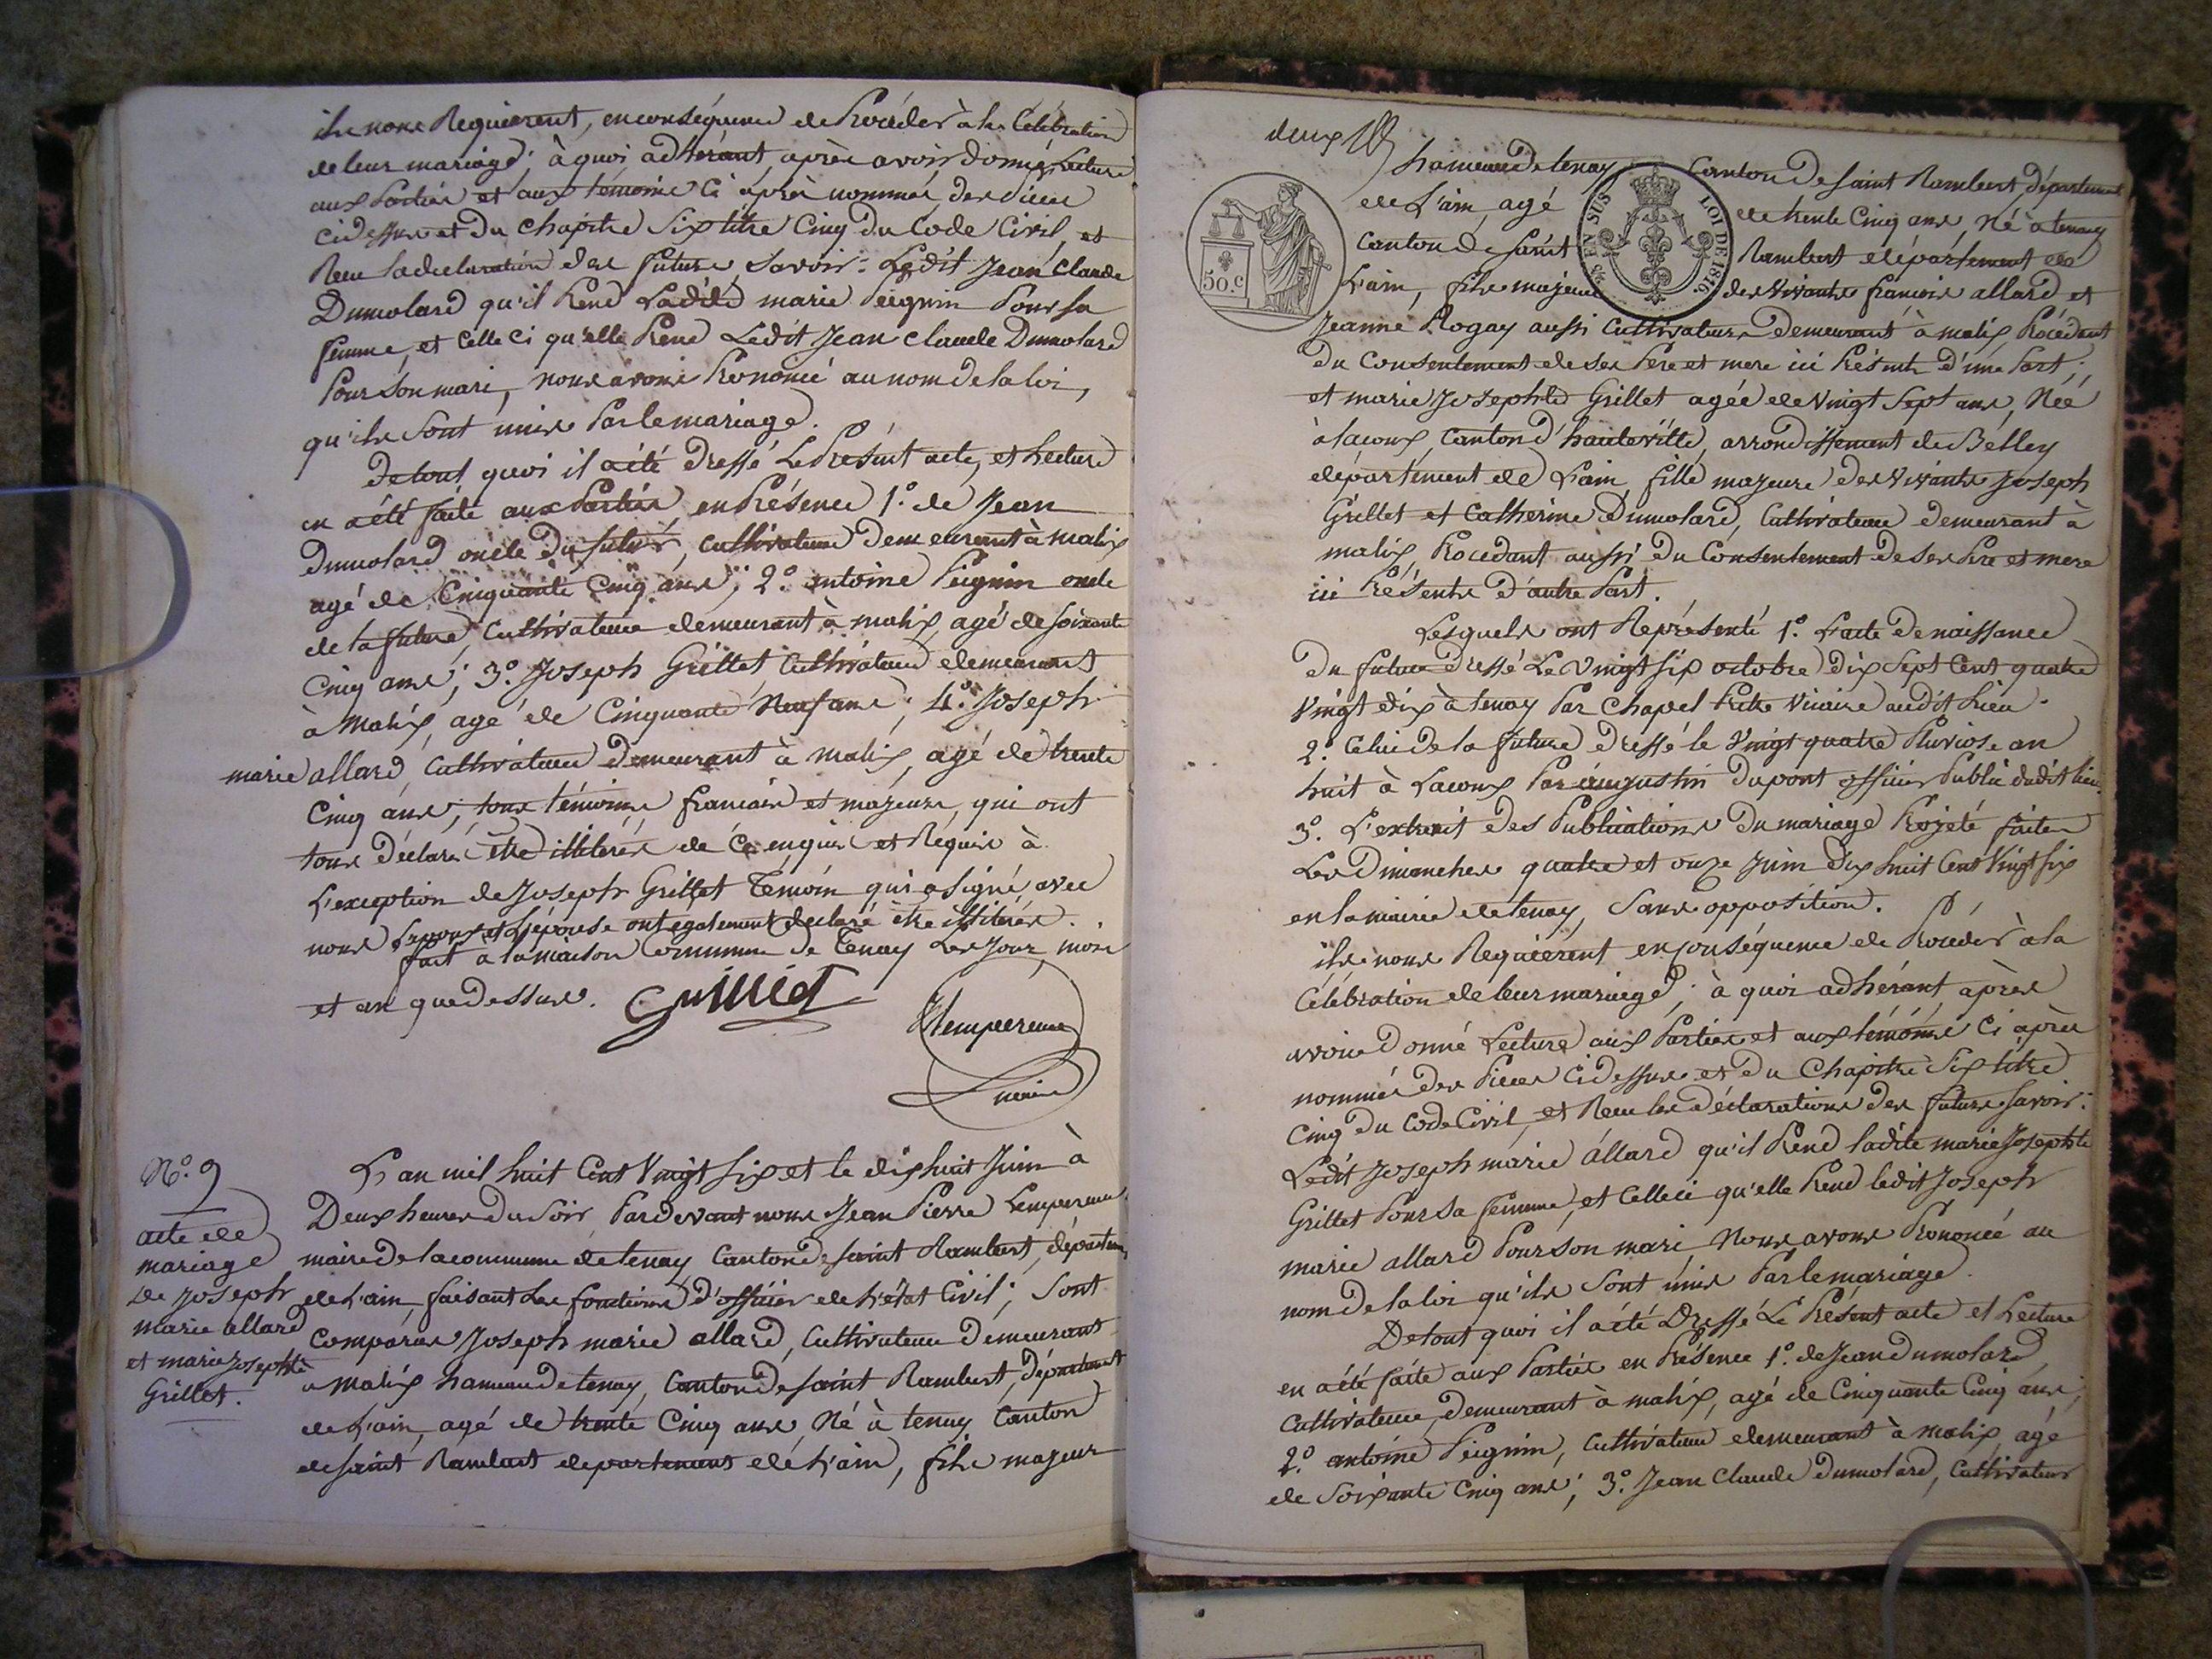 ils nous Requierent, en conséquence de Procéder à la Célébration
de leur mariage; à quoi adhérant, après avoir donné Lecture
aux Parties et aux témoins Ci après nommés, des Pièces
Cidessus et du Chapitre Six titre Cinq du Code Civil, et
Recu la declaration des futurs, Savoir: Ledit Jean Claude
Dumolard qu'il Prend Ladite marie Peignin Pour sa
femme, et Celle Ci qu'elle Prend Ledit Jean Claude Dumolard
Pour Son mari, nous avons Prononcé au nom de la loi,
qu'ils Sont unis Par le mariage.
De tout quoi il a été Dressé Le Présent acte, et Lecture
en a été faite aux Parties en Présence 1.° de Jean
Dumolard oncle du futur, Cultivateur Demeurant à malix
agé de Cinquante Cinq ans; 2.° antoine Peignin oncle
de la future, Cultivateur demeurant à malix, agé de soixante
Cinq ans; 3.° Joseph Grillet Cultivateur demeurant
à Malix, agé de Cinquante Neuf ans; 4.° Joseph
marie allard, Cultivateur Demeurant à malix, agé de trente
Cinq ans, tous témoins francais et majeurs, qui ont
tous Déclaré être illitérés de Ce enquis et Requis à
L'exception de Joseph Grillet Témoin qui a signé avec
nous L'epoux et L'épouse ont egalement declaré être illitérés.
fait à la maison Commune de Tenay Les Jour, mois
et an que dessus. Grillet
Lempereur
maire
N.° 9
acte de
mariage
de Joseph
marie allard
et marie Josephte
Grillet.
L'an mil huit Cent Vingt Six et le dix huit Juin à
Deux heures Du Soir, Pardevant nous Jean Pierre Lempereur
maire de la commune de tenay Canton de saint Rambert, départem.
de L'ain, faisant Les fonctions d'officier de L'état Civil; Sont
Comparus Joseph marie allard, Cultivateur Demeurant
a Malix hameau de tenay, Canton de saint Rambert, Département
de L'ain, agé de trente Cinq ans, Né à tenay Canton
de saint Rambert departement de L'ain, fils majeur
deux
hameau De tenay Canton De saint Rambert, département
de L'ain, agé de trente Cinq ans, Né à tenay
Canton de saint Rambert département de
L'ain, fils majeur des Vivants francois allard et
50.C
EN SUS LOI DE 1816
Jeanne Rogay aussi Cultivateurs Demeurant à malix, Procédant
Du Consentement de ses Pere et mere ici Présents d'une Part;
et marie Josephte Grillet agée de Vingt Sept ans, Née
à lacoux, Canton d'hauteville, arrondissement de Belley
département de L'ain, fille majeure Des Vivants Joseph
Grillet et Catherine Dumolard, Cultivateurs demeurant à
malix, Procedant aussi du Consentement de ses Pere et mere
ici Présents d'autre Part.
Lesquels ont Représenté 1.° L'acte De naissance
Du futur Dressé Le Vingt Six octobre Dix Sept Cent quatre
Vingt dix à tenay Par Chapel Prêtre Vicaire audit Lieu.
2.° Celui de la future Dressé le Vingt quatre Pluviose an
huit à Lacoux Par augustin Dupont officier Public dudit lieu.
3.° L'extrait des Publications Du mariage Projeté faites
Les Dimanches quatre et onze Juin Dix huit Cent Vingt Six
en la mairie de tenay, Sans opposition.
ils nous Requierent en conséquence de Procéder à la
Célébration de leur mariage; à quoi adhérant, après
avoir Donné Lecture aux Parties et aux témoins Ci après
nommés des Pieces Cidessus et du Chapitre Six titre
Cinq Du Code Civil, et Recu les Déclarations des futurs Savoir:
Ledit Joseph marie allard qu'il Prend ladite marie Josephte
Grillet Pour sa femme, et Celleci qu'elle Prend ledit Joseph
marie allard Pour son mari, Nous avons Prononcé au
nom de la loi qu'ils Sont unis Par le mariage.
De tout quoi il a été Dressé Le Présent acte et Lecture
en a été faite aux Parties en Présence 1.° de Jean Dumolard
Cultivateur, Demeurant à malix, agé de Cinquante Cinq ans;
2.° antoine Peignin, Cultivateur demeurant à malix agé
de Soixante Cinq ans; 3.° Jean Claude Dumolard, Cultivateur